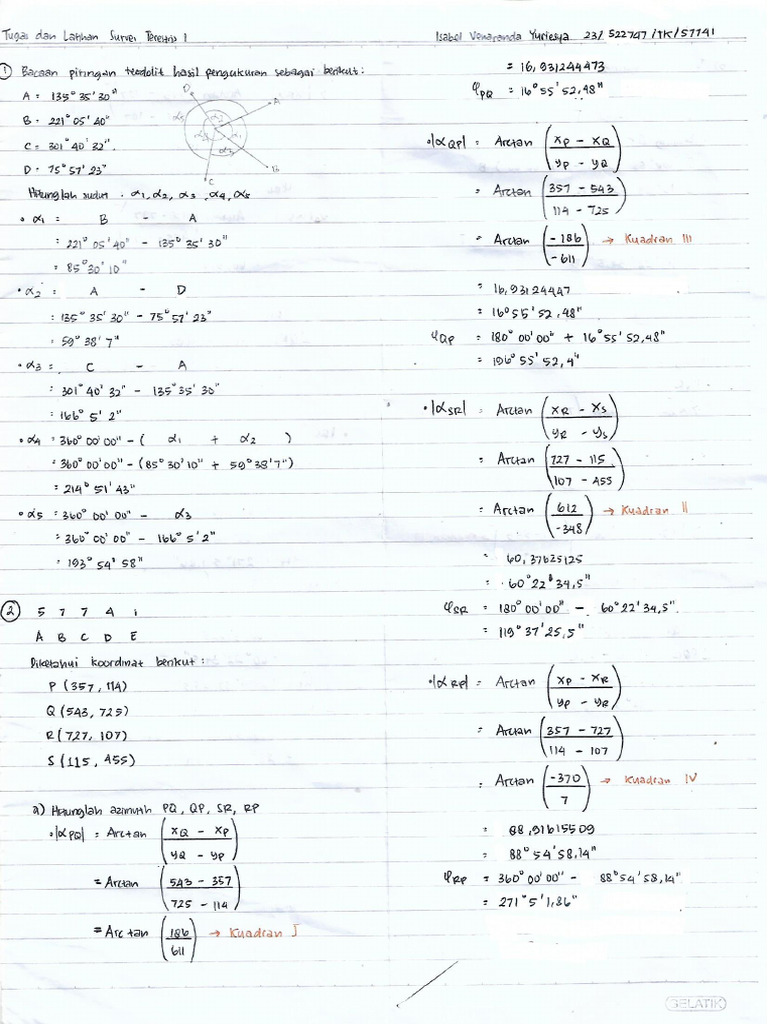 Tugas dan Latihan Survei Terestris 1
Isabel Venaranda Yuriesya 23/522747/TK/57741
① Bacaan piringan teodolit hasil pengukuran sebagai berikut :
A = 135° 35' 30"
B = 221° 05' 40"
C = 301° 40' 32".
D = 75° 57' 23"
D
A
B
C
α5
α2
α1
α3
Hitunglah sudut . α1, α2, α3, α4, α5
• α1 = B - A
= 221° 05' 40" - 135° 35' 30"
= 85° 30' 10"
• α2 = A - D
= 135° 35' 30" - 75° 57' 23"
= 59° 38' 7"
• α3 = C - A
= 301° 40' 32" - 135° 35' 30"
= 166° 5' 2"
• α4 = 360° 00' 00" - ( α1 + α2 )
= 360° 00' 00" - (85° 30' 10" + 59° 38' 7")
= 214° 51' 43"
• α5 = 360° 00' 00" - α3
= 360° 00' 00" - 166° 5' 2"
= 193° 54' 58"
② 5 7 7 4 1
A B C D E
Diketahui koordinat berikut :
P (357, 114)
Q (543, 725)
R (727, 107)
S (115, 455)
a) Hitunglah azimuth PQ, QP, SR, RP
• |αPQ| = Arctan (xQ - xP / yQ - yP)
= Arctan (543 - 357 / 725 - 114)
= Arctan (186 / 611) → Kuadran I
= 16,931244473
φPQ = 16° 55' 52,48"
• |αQP| = Arctan (xP - xQ / yP - yQ)
= Arctan (357 - 543 / 114 - 725)
= Arctan (-186 / -611) → Kuadran III
= 16,93124447
= 16° 55' 52,48"
φQP = 180° 00' 00" + 16° 55' 52,48"
= 196° 55' 52,4"
• |αSR| = Arctan (xR - xS / yR - yS)
= Arctan (727 - 115 / 107 - 455)
= Arctan (612 / -348) → Kuadran II
= 60,37625125
= 60° 22' 34,5"
φSR = 180° 00' 00" - 60° 22' 34,5".
= 119° 37' 25,5"
• |αRP| = Arctan (xP - xR / yP - yR)
= Arctan (357 - 727 / 114 - 107)
= Arctan (-370 / 7) → Kuadran IV
= 88,91615509
= 88° 54' 58,14"
φRP = 360° 00' 00" - 88° 54' 58,14"
= 271° 5' 1,86"
GELATIK